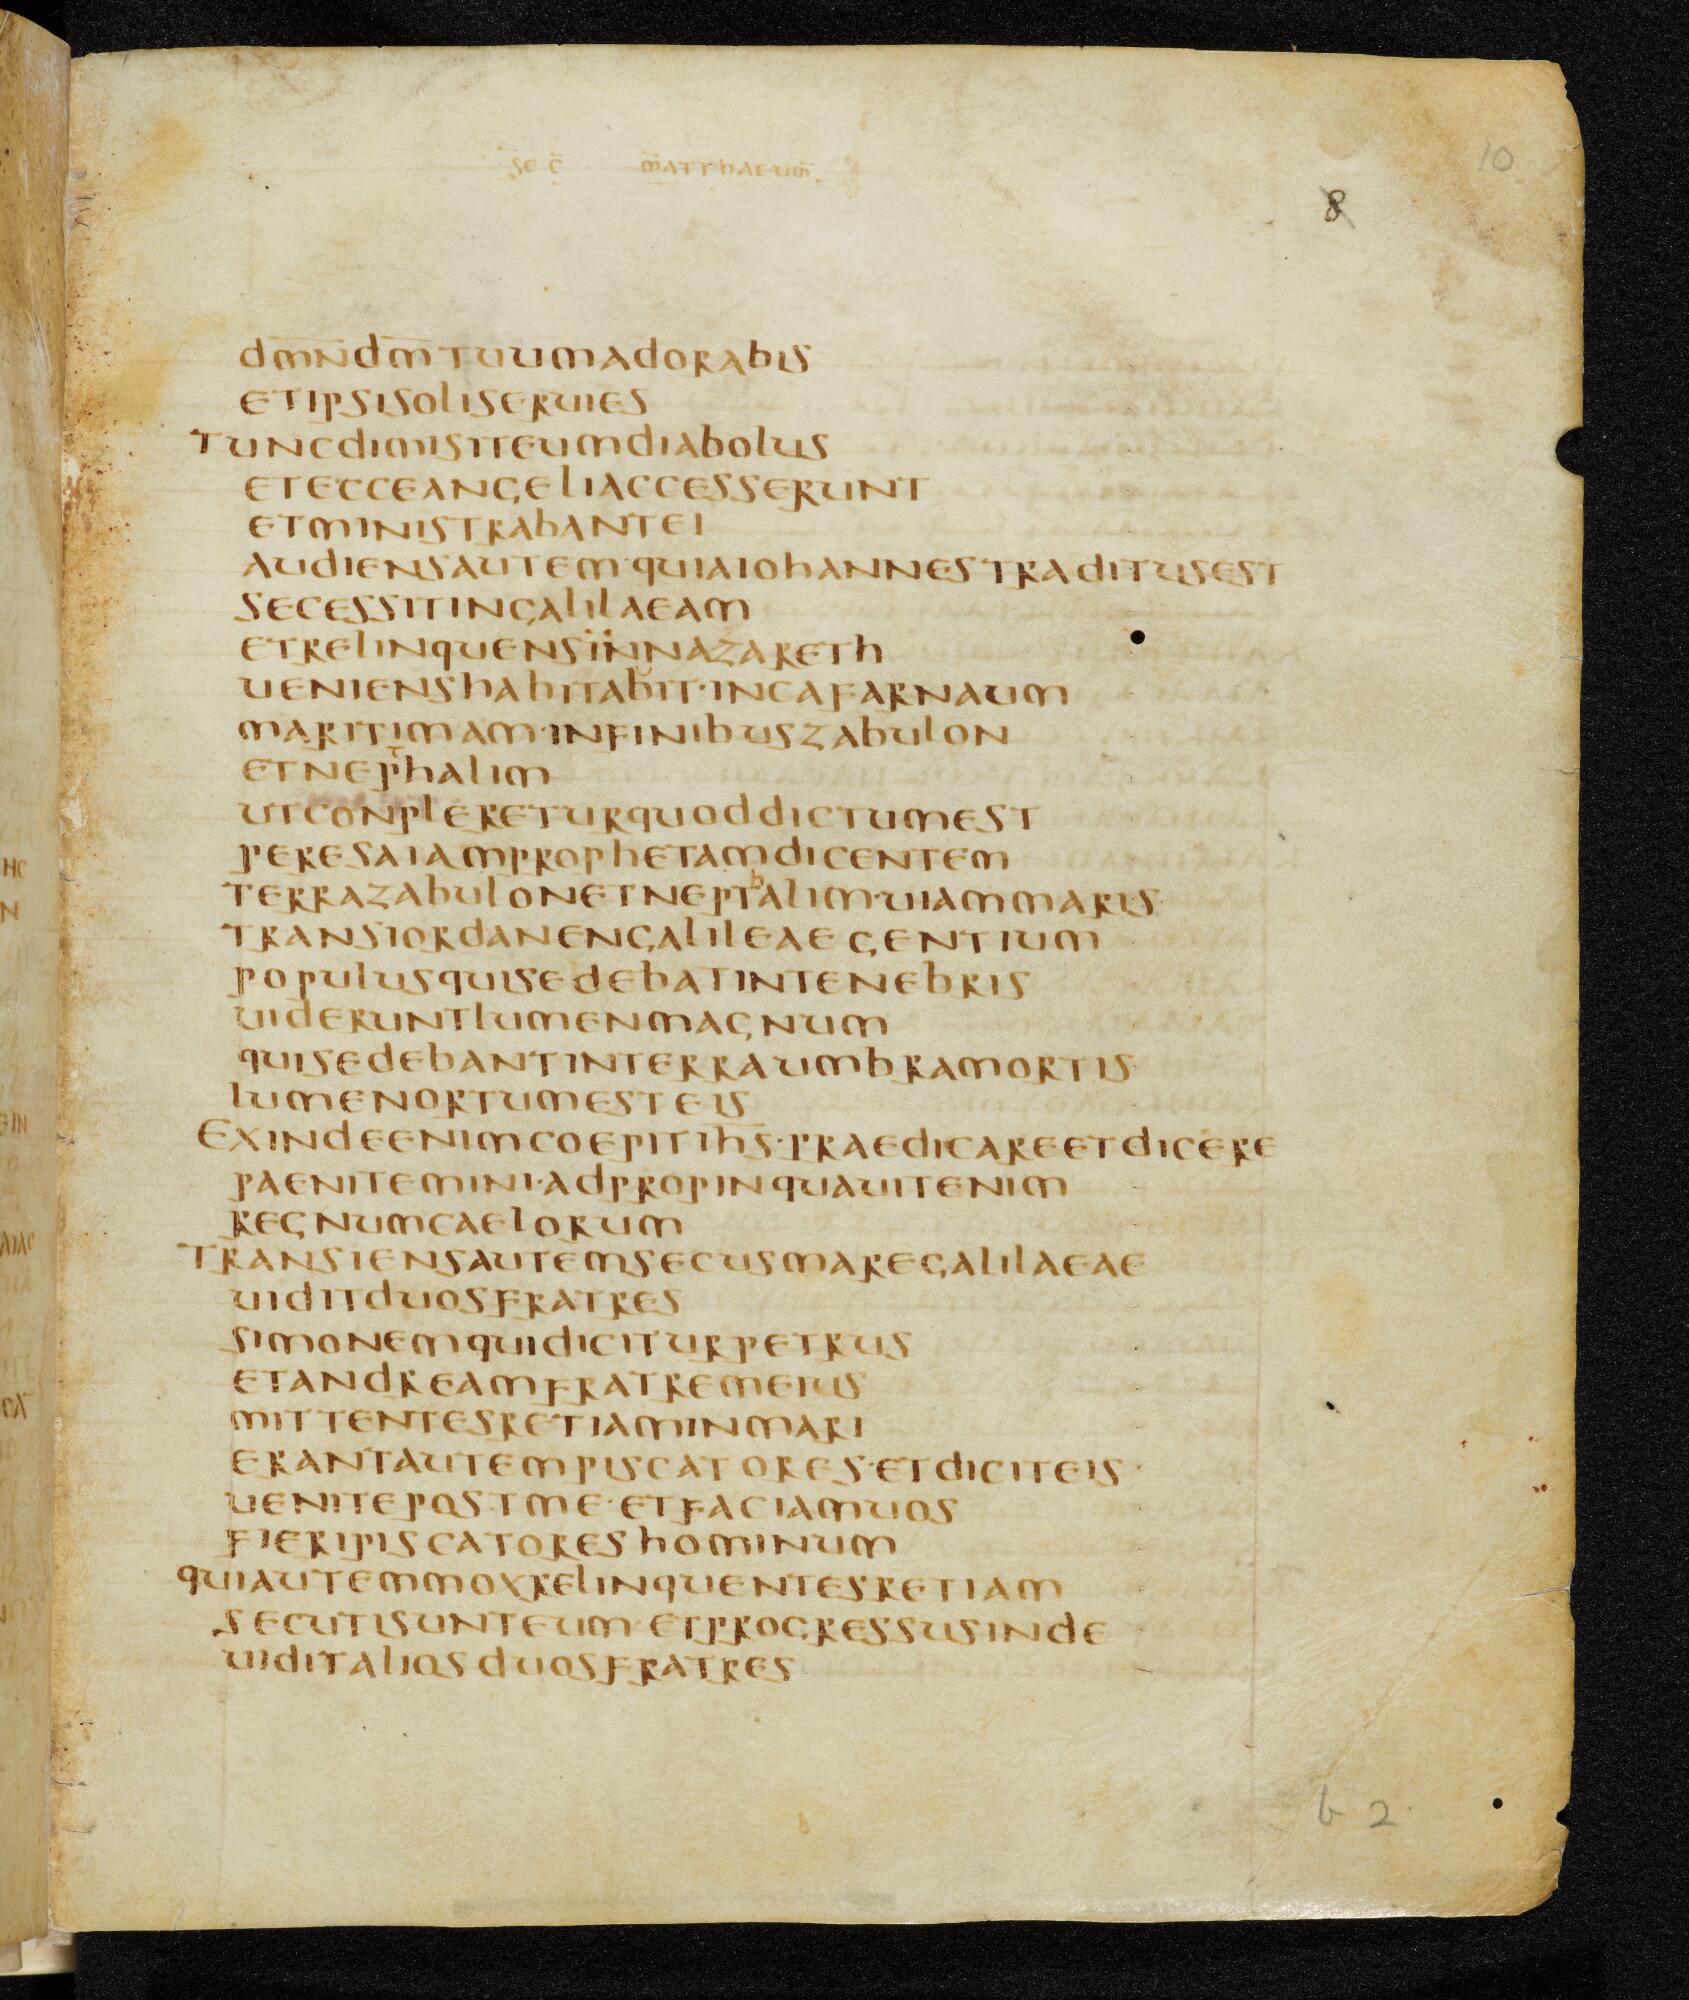 sēc̄ m̄atthaeum̄
10
8
dm̄n̄dm̄tuumadorabis
etipsisoliseruies
tuncdimisiteumdiabolus
etecceangeliaccesserunt
etministrabantei
audiensautem·quiaiohannestraditusest
secessitingalilaeam
etrelinquensinnazareth
uenienshabitabit·incafarnaum
maritimam·infinibuszabulon
etnepthalim
utconplereturquoddictumest
peresaiamprophetamdicentem
terrazabulonetnepthalim·uiammaris
transiordanengalileaegentium
populusquisedebatintenebris
uideruntlumenmagnum
quisedebantinterraumbramortis
lumenortumesteis
exindeenimcoepitih̄s̄·praedicareetdicere
paenitemini·adpropinquauitenim
regnumcaelorum
transiensautemsecusmaregalilaeae
uiditduosfratres
simonemquidiciturpetrus
etandreamfratremeius
mittentesretiaminmari
erantautempiscatores·etdiciteis·
uenitepostme·etfaciamuos
fieripiscatoreshominum
quiautemmoxrelinquentesretiam
secutisunteum·etprogressusinde
uiditaliosduosfratres
b 2